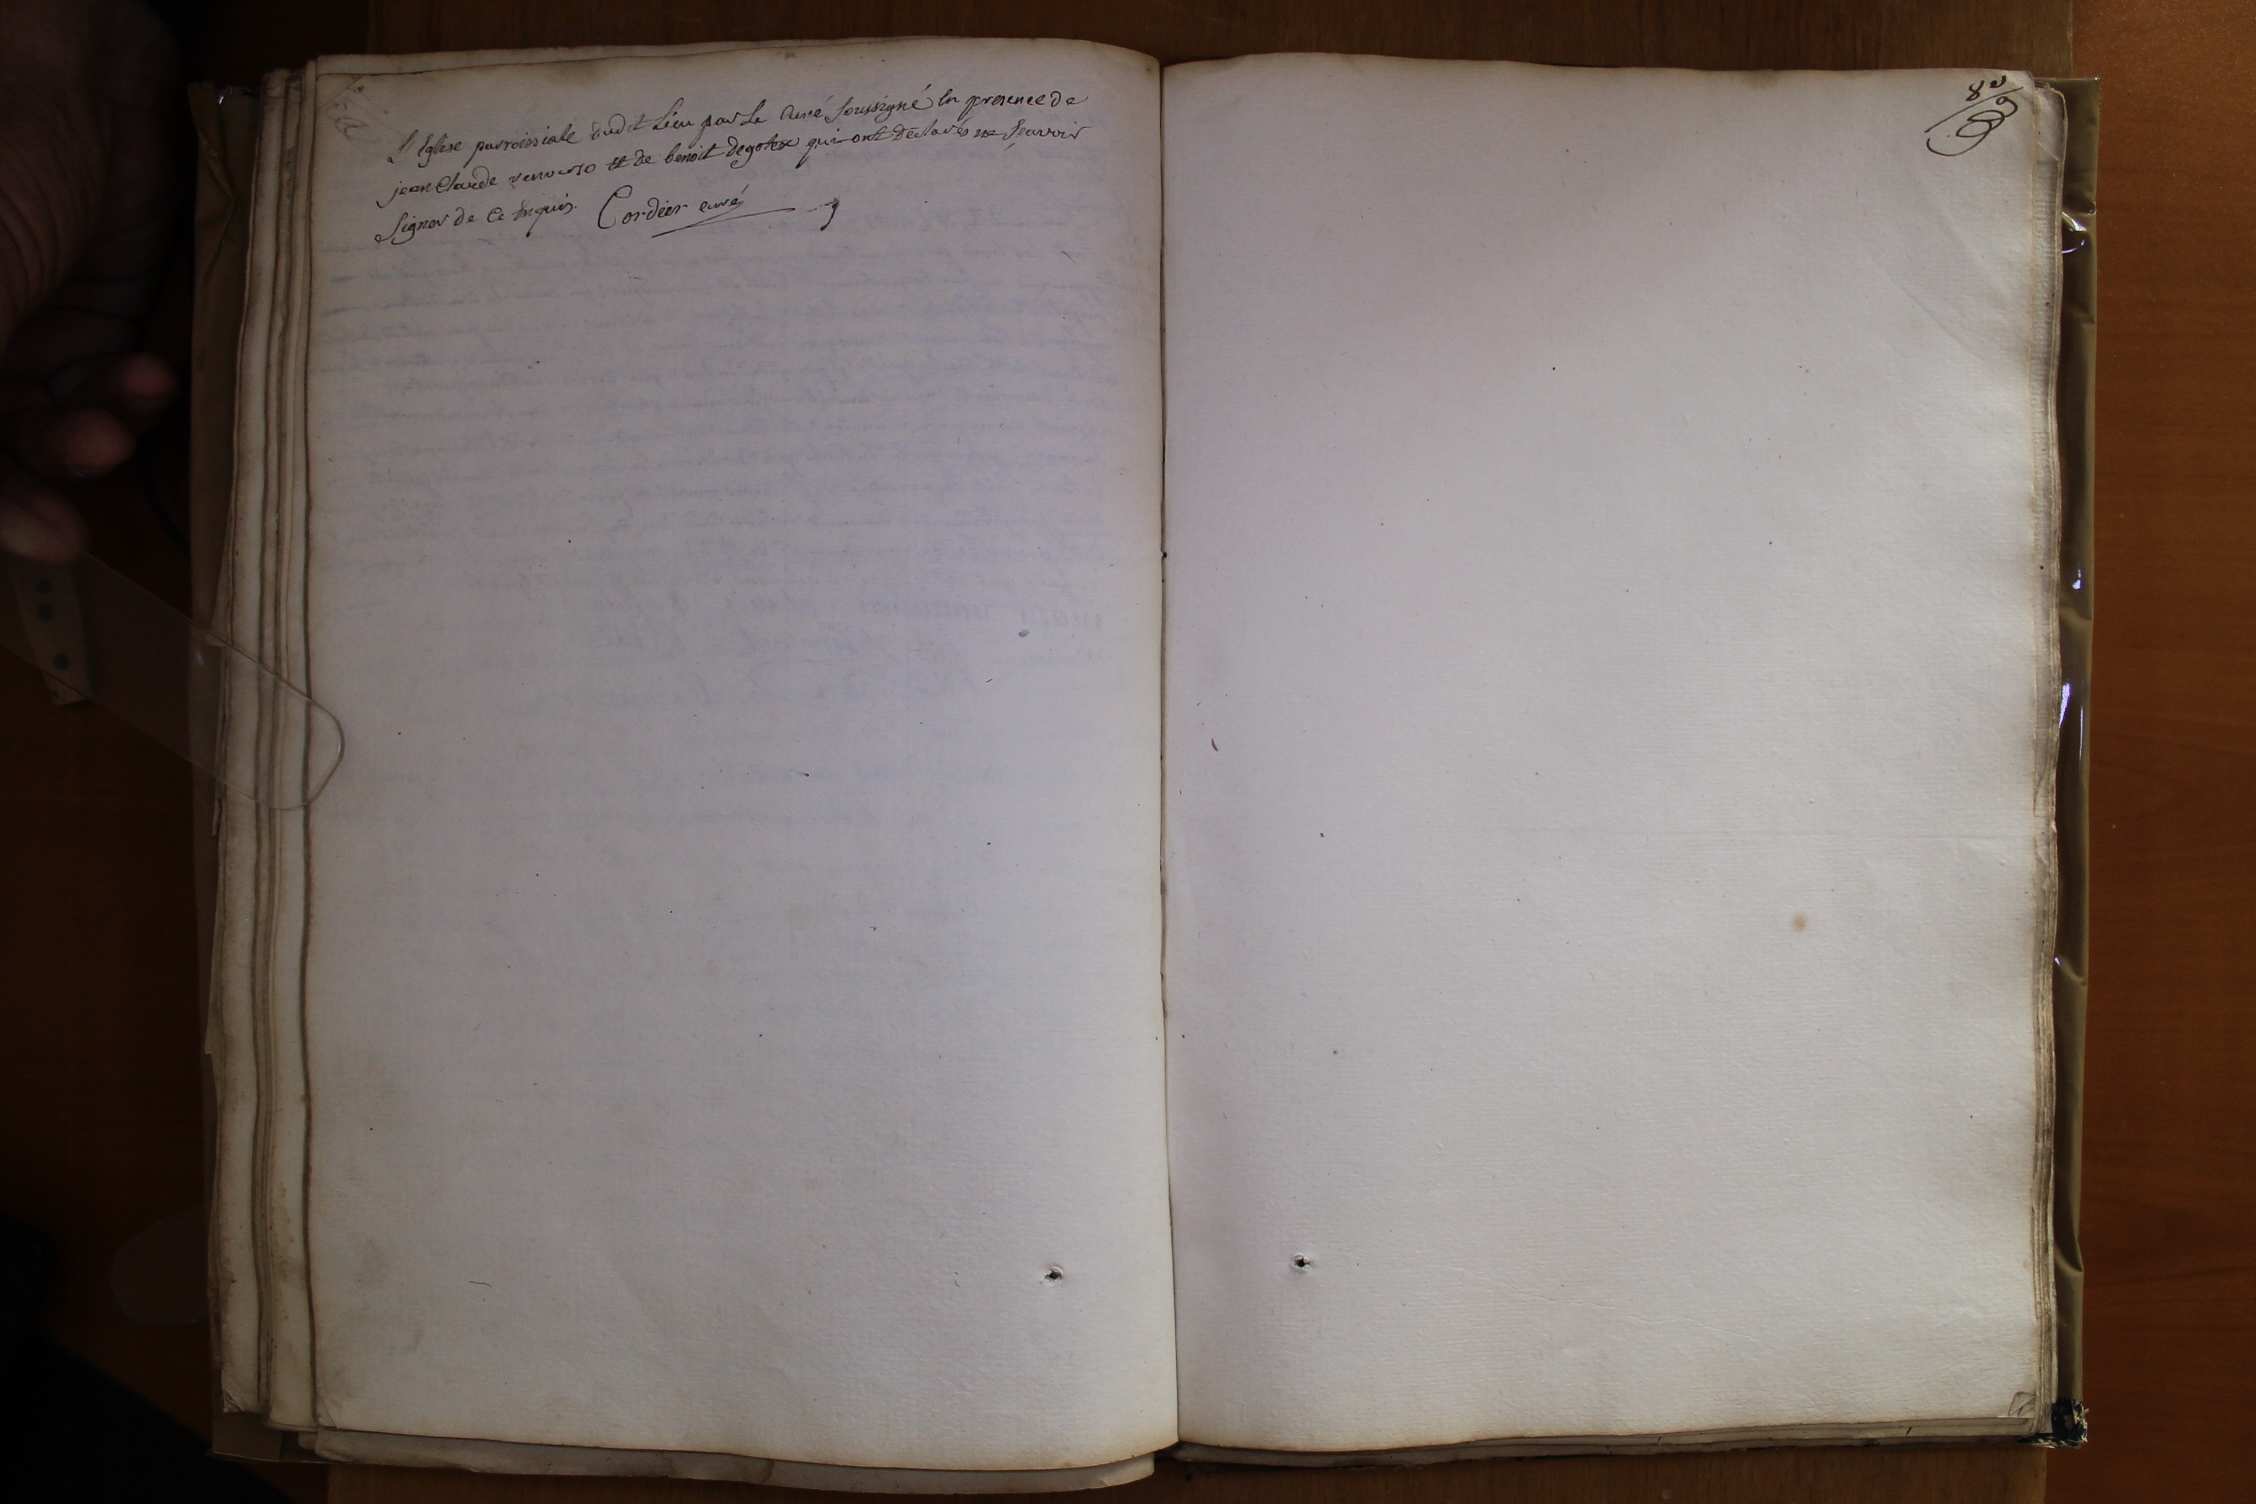 L'Eglise parroissiale dudit Lieu par Le Curé soussigné En presence de
jean Claude et de benoit qui ont declarés ne sçavoir
signer de ce Enquis. Cordier curé
8e